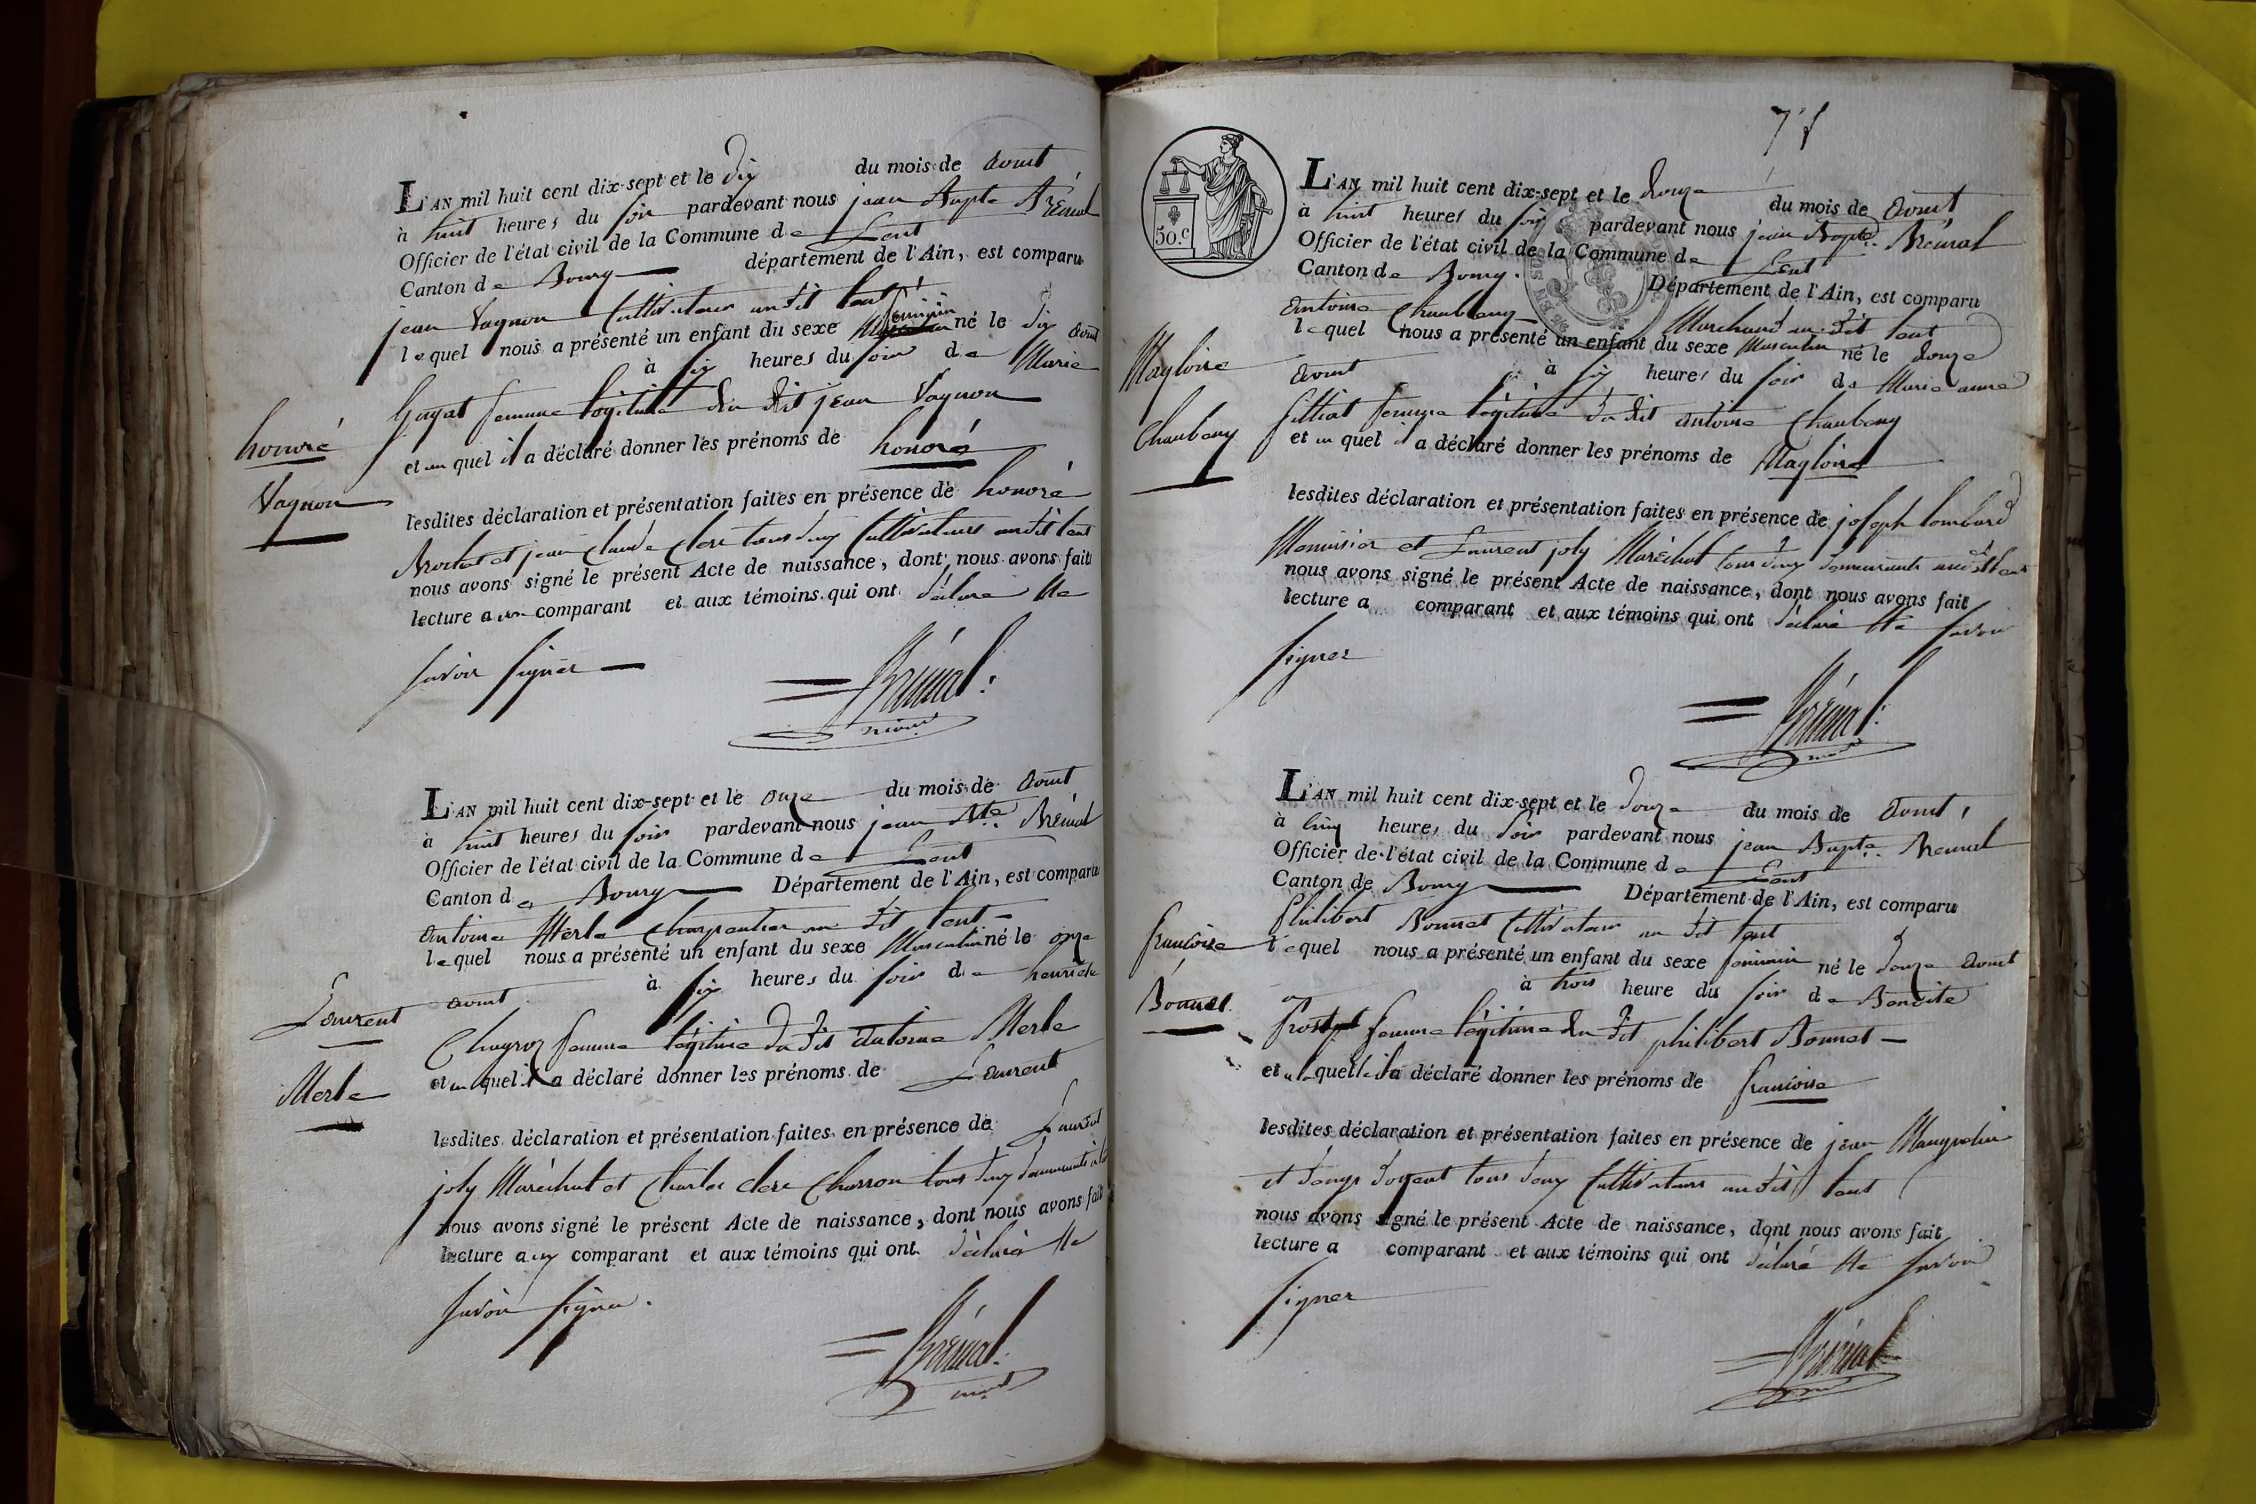 L'AN mil huit cent dix-sept et le dix du mois de aout
à huit heures du soir pardevant nous jean Bapte Brénal
Officier de l'état civil de la Commune de Lent
Canton de Bourg département de l'Ain, est comparu
jean Vagnon Cultivateur audit Lent
feminin
lequel nous a présenté un enfant du sexe né le dix aout
à six heures du soir de Marie
Guyat femme légitime du dit jean Vagnon
honoré
et au quel il a déclaré donner les prénoms de honoré
Vagnon
lesdites déclaration et présentation faites en présence de honoré
Brochet et jean Claude Clerc tous deux Cultivateurs audit Lent
nous avons signé le présent Acte de naissance, dont nous avons fait
lecture au comparant et aux témoins qui ont déclaré Ne
savoir signer
Brénal
L'AN mil huit cent dix-sept et le onze du mois de aout
à huit heures du soir pardevant nous jean Bte Brénal
Officier de l'état civil de la Commune de Lent
Canton de Bourg Département de l'Ain, est comparu
antoine Merle Charpentier au dit Lent
lequel nous a présenté un enfant du sexe Masculin né le onze
aout à six heures du soir de
Laurent
femme légitime du dit antoine Merle
Merle
et au quel il a déclaré donner les prénoms de Laurent
lesdites déclaration et présentation faites en présence de Laurent
joly Maréchal et Charles clerc Charron tous deux demeurants à
nous avons signé le présent Acte de naissance, dont nous avons fait
lecture au comparant et aux témoins qui ont déclaré Ne
savoir signer.
Brénal
50.c
L'AN mil huit cent dix-sept et le douze du mois de aout
à huit heures du soir pardevant nous jean Bapte Brénal
Officier de l'état civil de la Commune de Lent
Canton de Bourg. Département de l'Ain, est comparu
antoine Chaubany Marchand au dit Lent
lequel nous a présenté un enfant du sexe Masculin né le douze
Magloire
aout à six heures du soir de Marie anne
Chaubany
femme légitime du dit antoine Chaubany
et au quel il a déclaré donner les prénoms de Magloire
lesdites déclaration et présentation faites en présence de joseph Lombard
Menuisier et Laurent joly Maréchal tous deux demeurants audit Lent
nous avons signé le présent Acte de naissance, dont nous avons fait
lecture a comparant et aux témoins qui ont déclaré Ne savoir
signer
Brénal
L'AN mil huit cent dix-sept et le douze du mois de aout
à cinq heures du soir pardevant nous jean Bapte Brénal
Officier de l'état civil de la Commune de Lent
Canton de Bourg Département de l'Ain, est comparu
philibert Bonnet Cultivateur au dit Lent
francoise
lequel nous a présenté un enfant du sexe feminin né le douze aout
à trois heure du soir de Benoite
Bonnet
femme légitime du dit philibert Bonnet
et a quelle il a déclaré donner les prénoms de francoise
lesdites déclaration et présentation faites en présence de jean
et tous deux Cultivateurs audit Lent
nous avons signé le présent Acte de naissance, dont nous avons fait
lecture a comparant et aux témoins qui ont déclaré Ne savoir
signer
Brénal